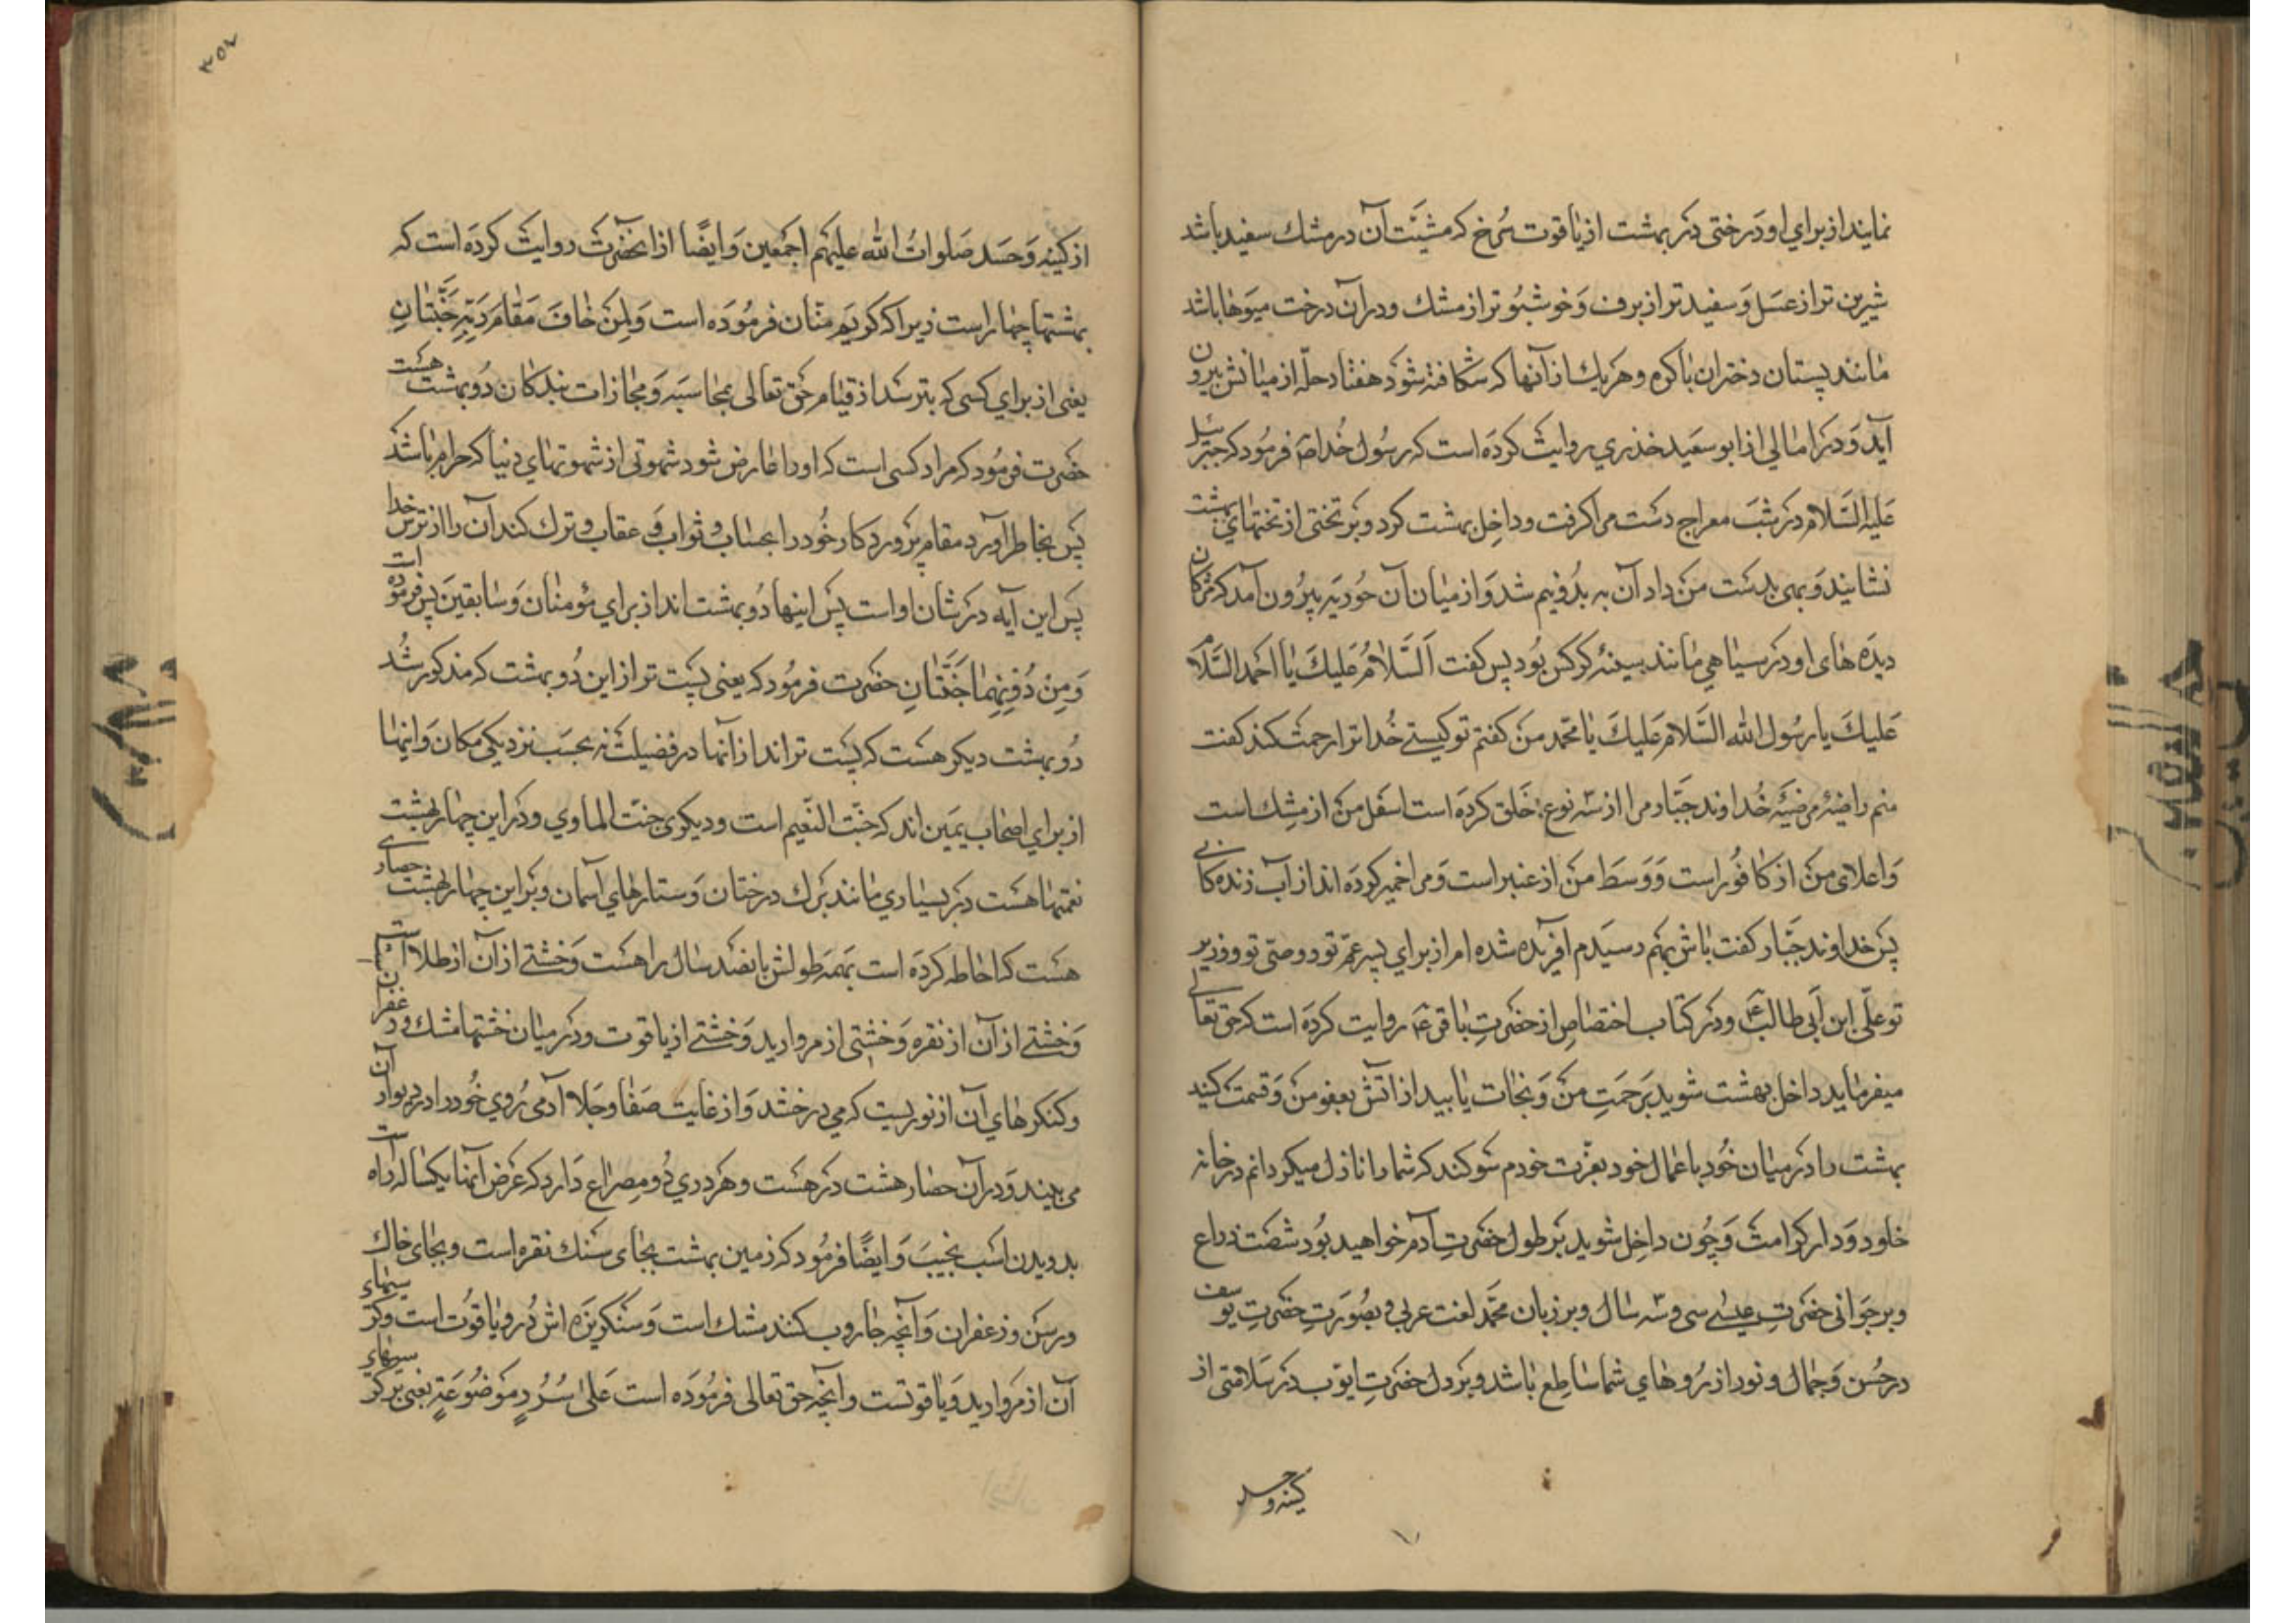 نمایند از برای او درختی در بهشت از یاقوت سرخ که مثبت آن در مشک سفید باشد
شیرین تر از عسل و سفید تر از برف و خوشبو تر از مشک و در آن درخت میوها باشد
مانند پستان دختران باکره و هر یک از آنها که شکافته شود هفتاد حله از میانش بیرون
آید و در امالی از ابو سعید خذری روایت کرده است که رسول خدا ص فرمود که جبرئیل
علیه السلام در شب معراج دست مرا کرفت و داخل بهشت کرد و بر تختی از تختهای بهشت
نشانید و بهی بدست من داد آن به بدو نیم شد و از میان آن حوریه بیرون آمد که مژکان
دیده های او در سیاهی مانند سینهٔ کرکس بود پس کفت السلام علیک یا احمد السلام
علیک یا رسول الله السلام علیک یا محمد من کفتم تو کیستی خدا ترا رحمت کند کفت
منم راضیهٔ مرضیّه خداوند جبّار مرا از سه نوع خلق کرده است اسفل من از مشک است
و اعلای من از کافور است و وسط من از عنبر است و مرا خمیر کرده اند از آب زنده کانی
پس خداوند جبّار کفت باش بهم رسیدم افریده شده ام از برای پسر عمّ تو و وصّی تو و وزیر
تو علّی ابن ابی طالب ع و در کتاب اختصاص از حضرت باقر ع روایت کرده است که حق تعالی
میفرماید داخل بهشت شوید برحمت من و نجات یابید از اتش بعفو من و قسمت کنید
بهشت را در میان خود باعمال خود بعزّت خودم سوکند که شما را نازل میکردانم در خانه
خلود و دار کرامت و چون داخل شوید بر طول حضرت آدم خواهید بود شصت ذراع
و بر جوانی حضرت عیسی سی و سه سال و بر زبان محمّد لغت عربی و بصورت حضرت یوسف
در حُسن و جمال و نور از روهای شما ساطع باشد و بر دل حضرت ایّوب در سلامتی از
کینه و حسد
۳۵۷
از کینه و حسد صلوات الله علیهم اجمعین و ایضًا از انحضرت روایت کرده است که
بهشتها چهار است زیرا که کریم منّان فرموده است وَلِمَن خافَ مَقامَ رَبِّهِ جَنَّتانِ
یعنی از برای کسی که بترسد از قیام حق تعالی بمحاسبه و مجازات بندکان دو بهشت هست
حضرت فرمود که مراد کسی است که او را عارض شود شهوتی از شهوتهای دنیا که حرام باشد
پس بخاطر آورد مقام پرورد کار خود را بحساب و ثواب و عقاب و ترک کند آن را از ترس خدا
پس این آیه در شان او است پس اینها دو بهشت اند از برای مؤمنان و سابقین پس فرموده است
وَمِن دُونِهِما جَنَّتانِ حضرت فرمود که یعنی پست تر از این دو بهشت که مذکور شد
دو بهشت دیکر هست که پست تر اند از انها در فضیلت نه بحسب نزدیکی مکان و اینها
از برای اصحاب یمین اند که جنّت النّعیم است و دیکری جنّت الماوی و در این چهار بهشت
نعمتها هست در بسیاری مانند برک درختان و ستارهای آسمان و بر این چهار بهشت حصاری
هست که احاطه کرده است بهمه طولش پانصد سال راهست و خشتی از آن از طلا است
و خشتی از آن از نقره و خشتی از مروارید و خشتی از یاقوت و در میان خشتها مشک و زعفران
و کنکرهای آن از نوریست که می درخشد و از غایت صفا و جلا آدمی روی خود را در دیوار آن
می بیند و در آن حصار هشت در هست و هر دری دو مصراع دارد که عرض آنها یکساله راه است
بدویدن اسب نجیب و ایضًا فرمود که زمین بهشت بجای سنک نقره است و بجای خاک
ورس و زعفران و آنچه جاروب کنند مشک است و سنکریزه اش دُر و یاقوت است و کرسیهای
آن از مروارید و یاقوتست و انچه حق تعالی فرموده است عَلی سُرُرٍ مَوضُوعَةٍ یعنی بر کرسیهای